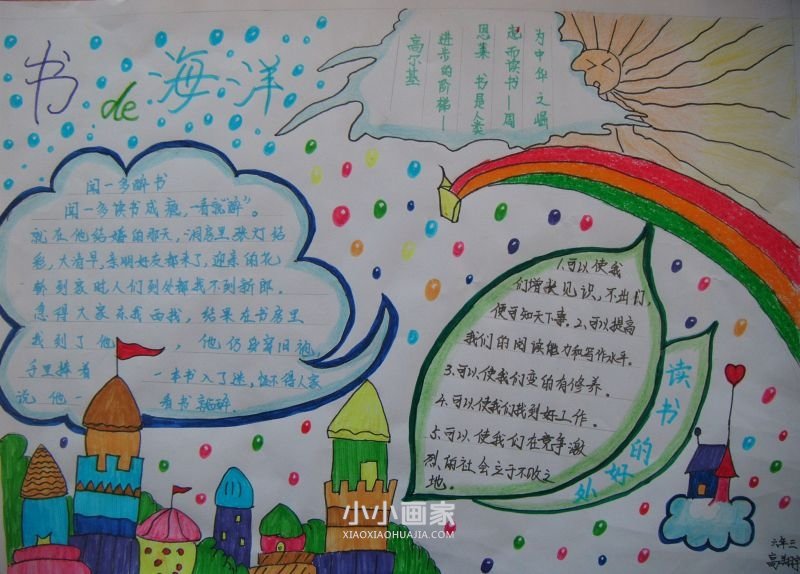 书 de 海洋
为中华之崛
起而读书—周
恩集 书是人类
进步的阶梯—
高尔基
闻一多醉书
闻一多读书成瘾,一看就"醉"。
就在他结婚的那天,洞房里张灯结
彩,大清早,亲朋好友都来了,迎亲的花
轿到家时,人们到处都找不到新郎。
急得大家东找西找,结果在书房里
找到了他,他仍穿着旧袍,
手里捧着一本书入了迷,怪不得人家
说他一看书就醉.
1.可以使我
们增长见识,不出门,
便可知天下事。2、可以提高
我们的阅读能力和写作水平。
3.可以使我们变的有修养。
4.可以使我们找到好工作。
5.可以使我们在竞争激
烈的社会立于不败之
地。
读书的好处
小小画家
XIAOXIAOHUAJIA.COM
六年三